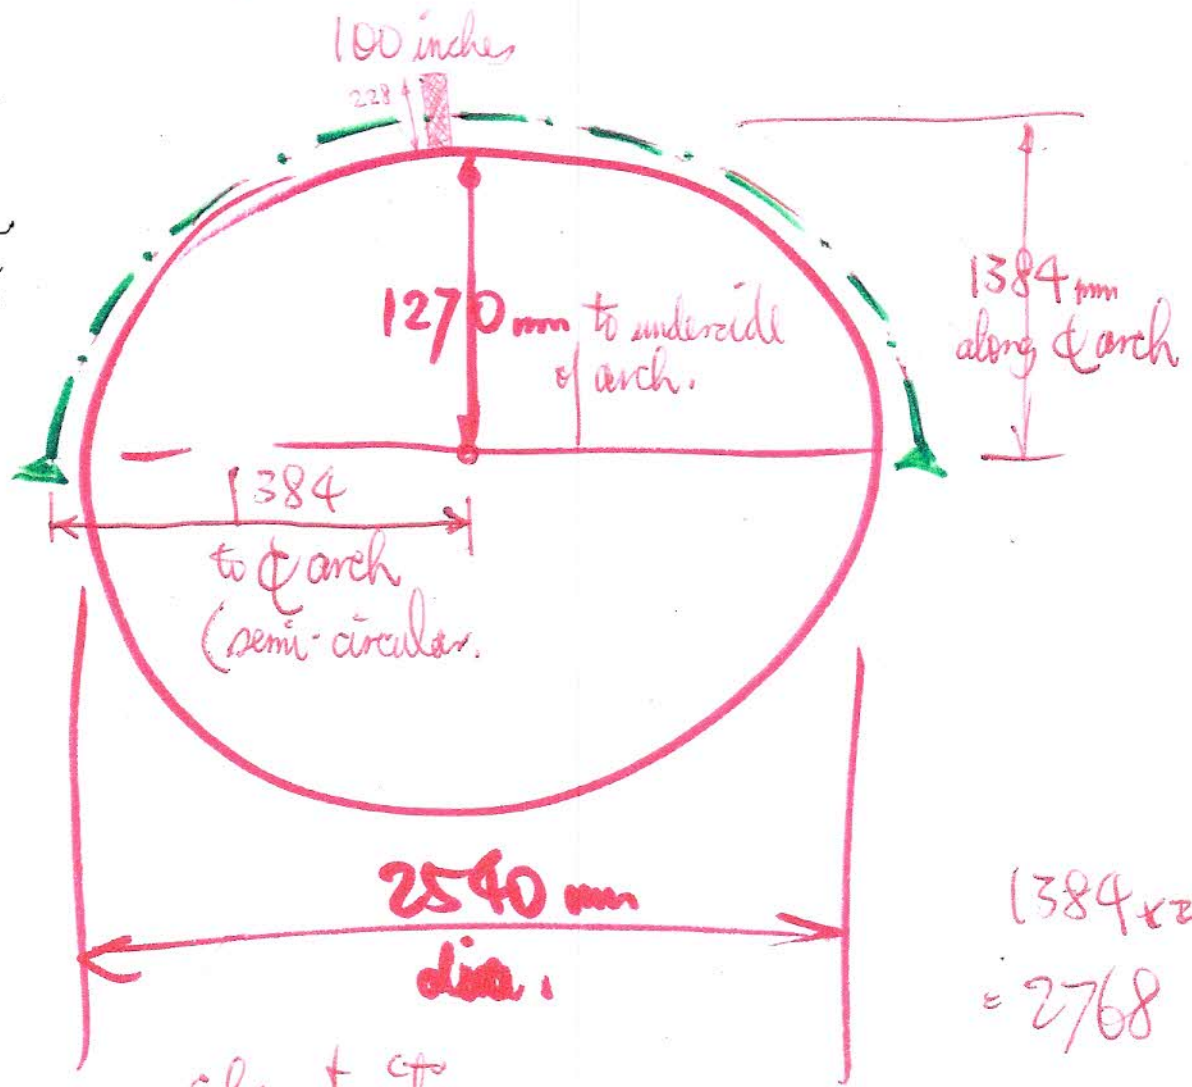 100 inches
228
1270 mm to underside
of arch.
1384 mm
along ℄ arch
1384
to ℄ arch
(semi-circular.
2540 mm
dia.
1384 x 2
= 2768